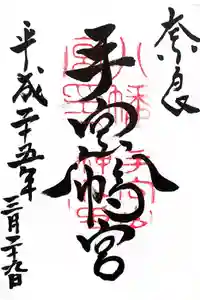 奈良
手向山八幡宮
平成二十五年
三月二十九日